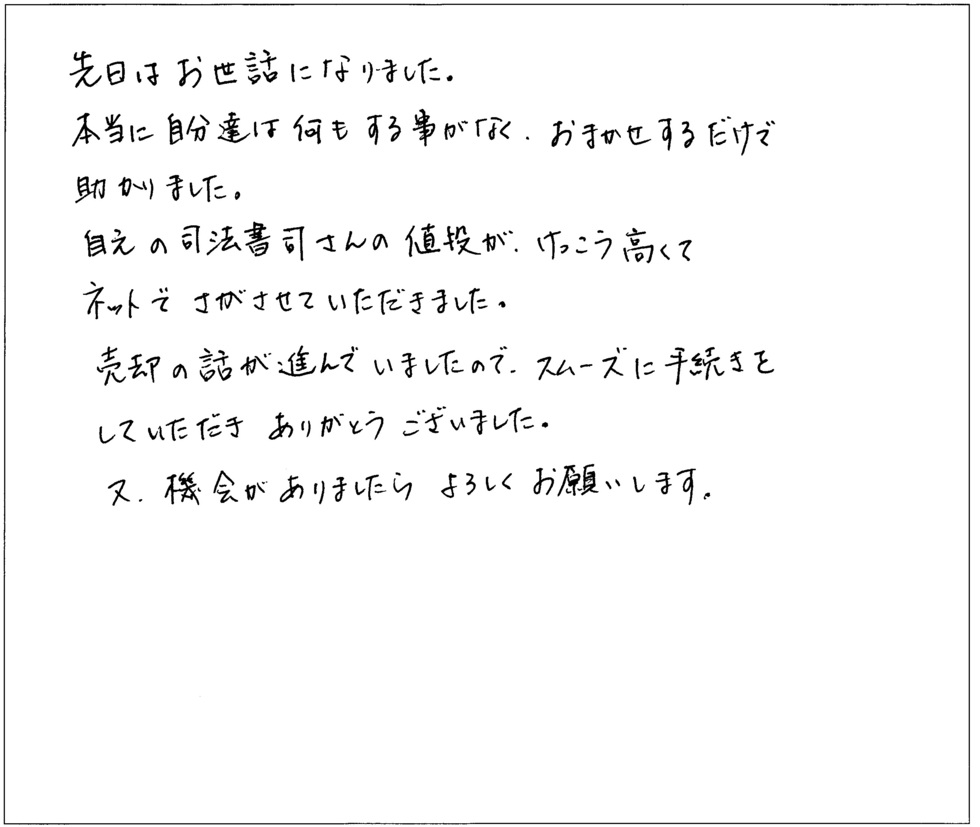 先日はお世話になりました。
本当に自分達は何もする事がなく、おまかせするだけで
助かりました。
自元の司法書司さんの値段が、けっこう高くて
ネットでさがさせていただきました。
売却の話が進んでいましたので、スムーズに手続きを
していただき ありがとう ございました。
又、機会がありましたら よろしく お願いします。